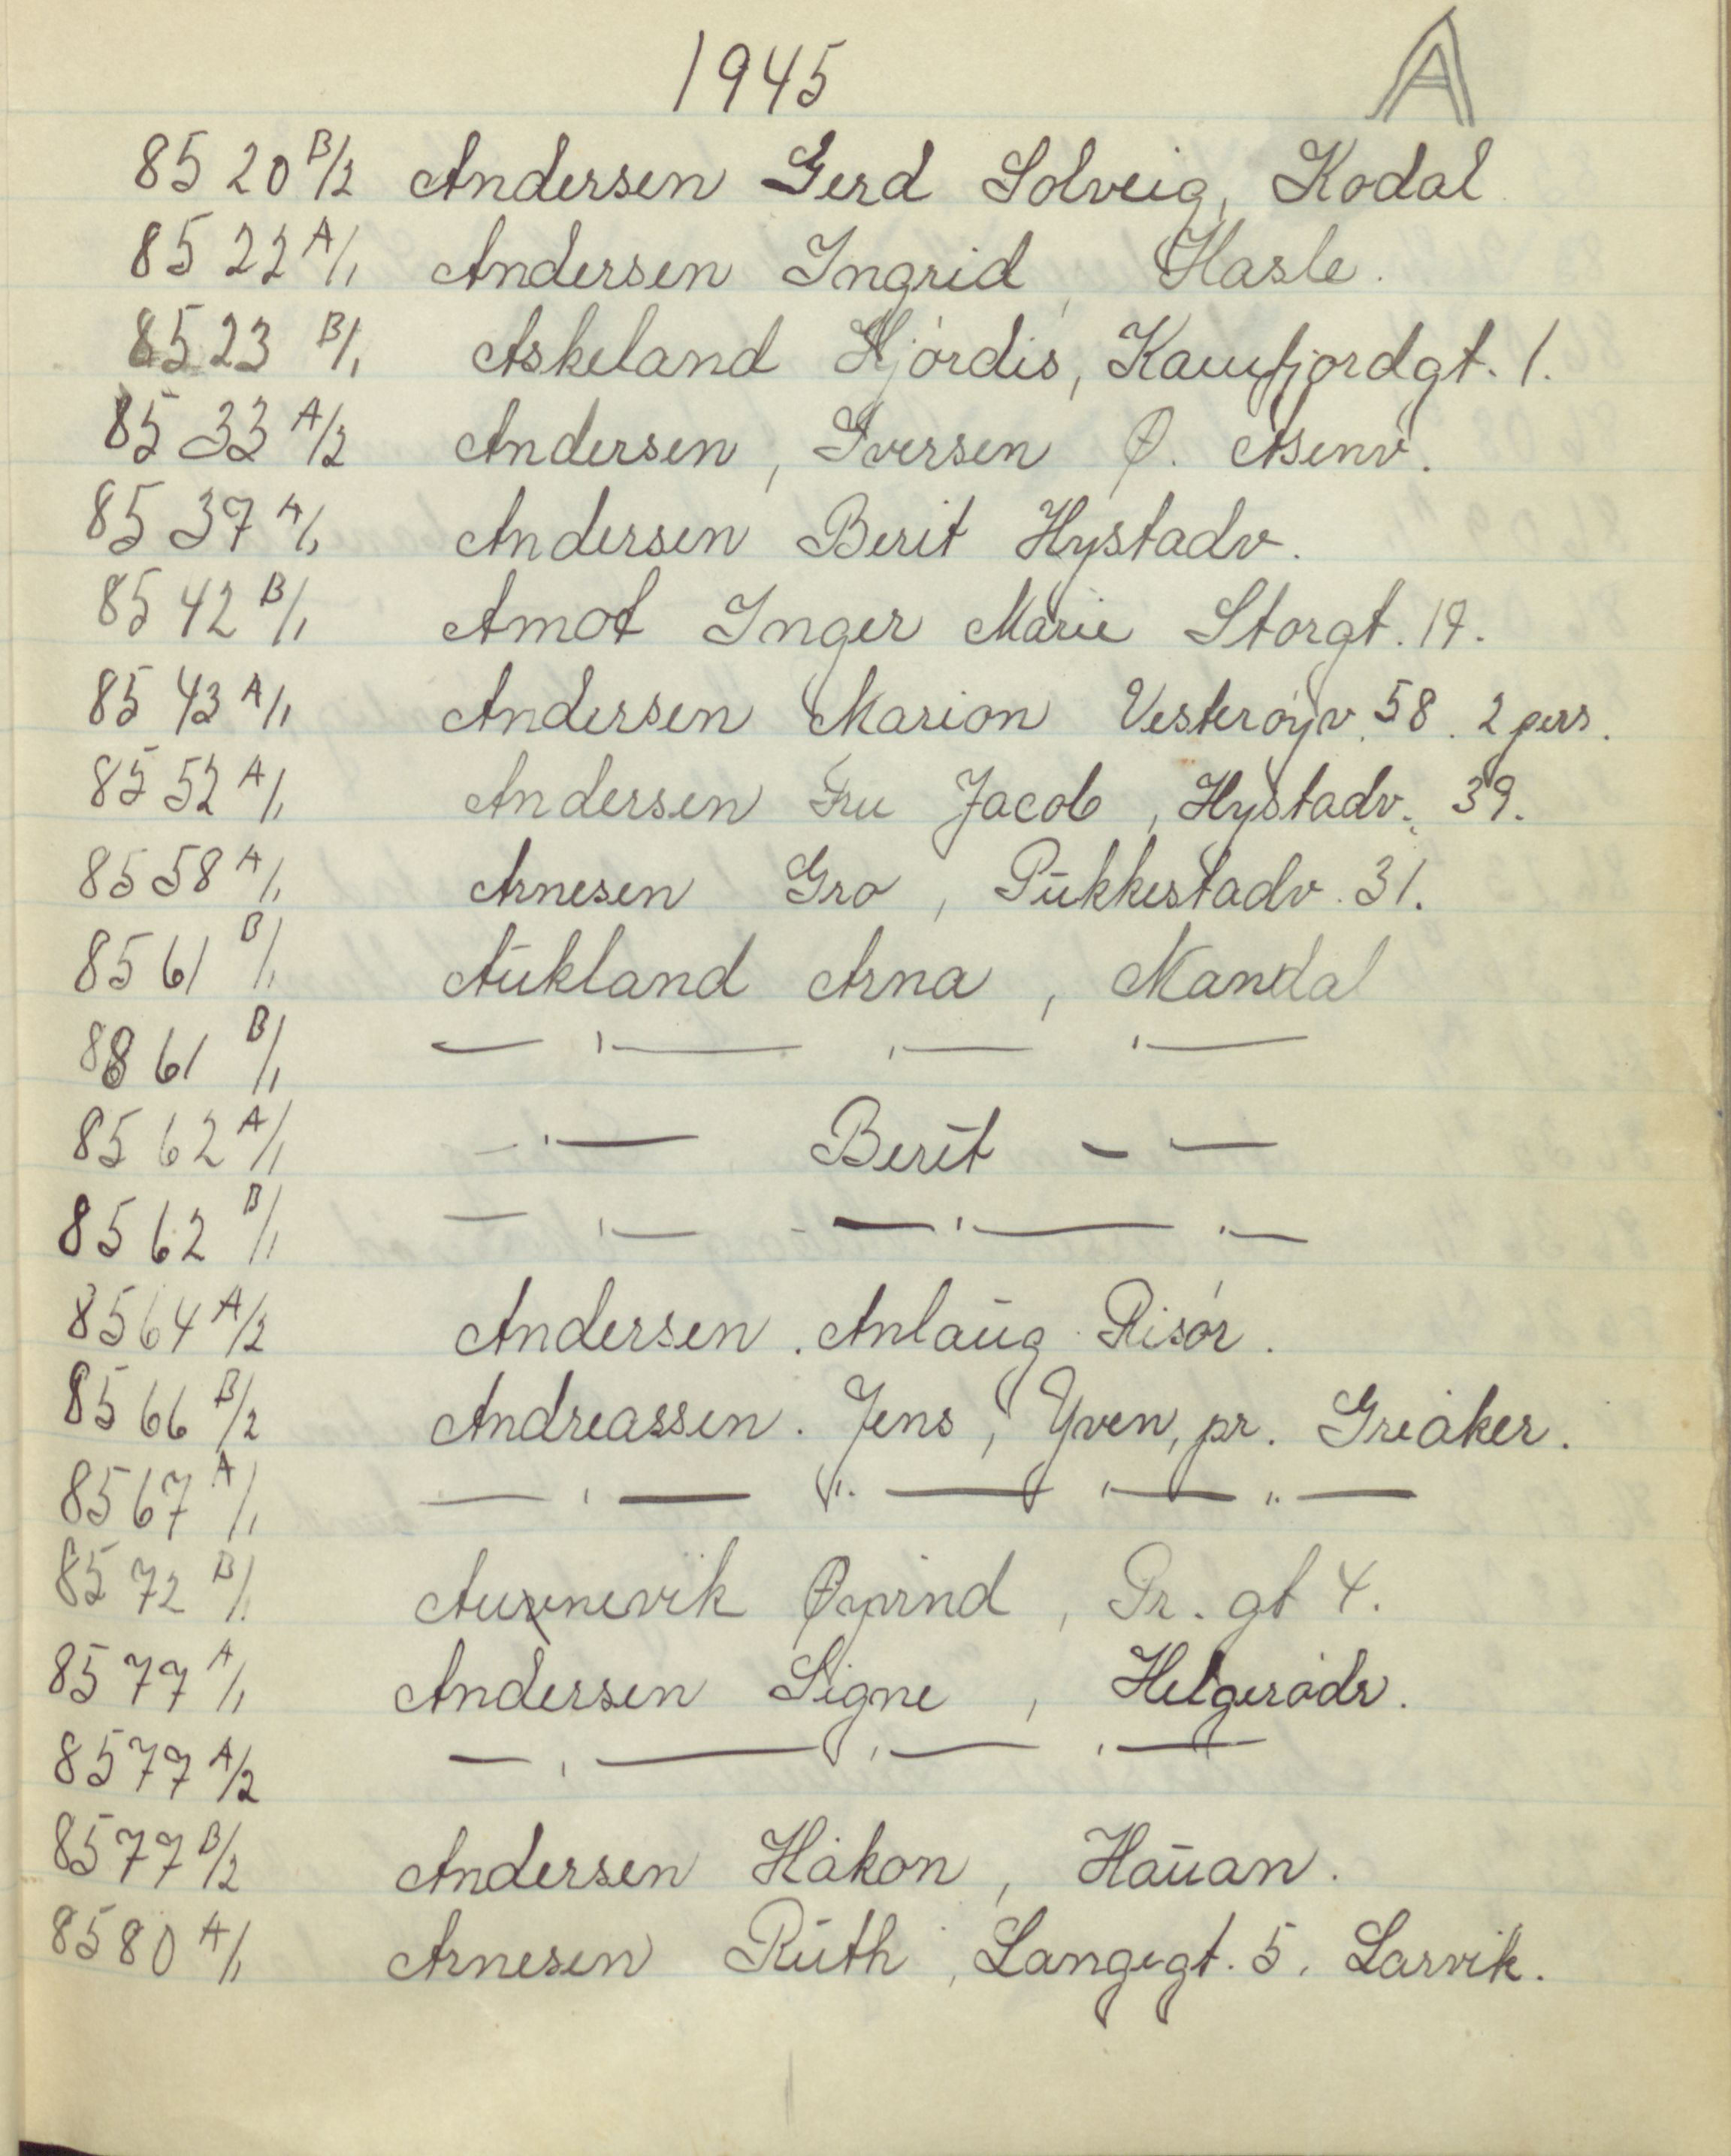 1945 A
8520 B/2 Andersen Gerd Solveig, Kodal
8522 A/1 Andersen Ingrid, Hasle.
8523 B/1 Askeland Hjórdis, Kamfjordgt. 1.
8533 A/2 Andersen, Iversen Ø. Åsenv.
8537 A/1 Andersen Berit Hystadv.
8542 B/1 Amot Inger Marie Storgt. 19.
8543 A/1 Andersen Marion Vesterøyv. 58. 2 pers.
8552 A/1 Andersen Fru Jacob, Hystadv. 39.
8558 A/1 Arnesen Gro, Pukkestadv. 31.
8561 B/1 Aukland Arna, Mandal
8861 B/1 — ' — ' — ' —
8562 A/1 — ' — Berit — —
8562 B/1 — ' — - — ' — ' —
8564 A/2 Andersen. Anlaug Risór.
8566 B/2 Andreassen. Jens, Yven, pr. Greåker.
8567 A/1 — ' — " — ' — " —
8572 B/1 Aunevik Øyvind, Pr. gt 4.
8577 A/1 Andersen Signe, Helgerødv.
8577 A/2 — ' — ' — ' —
8577 B/2 Andersen Håkon, Hauan.
8580 A/1 Arnesen Ruth, Langegt. 5. Larvik.